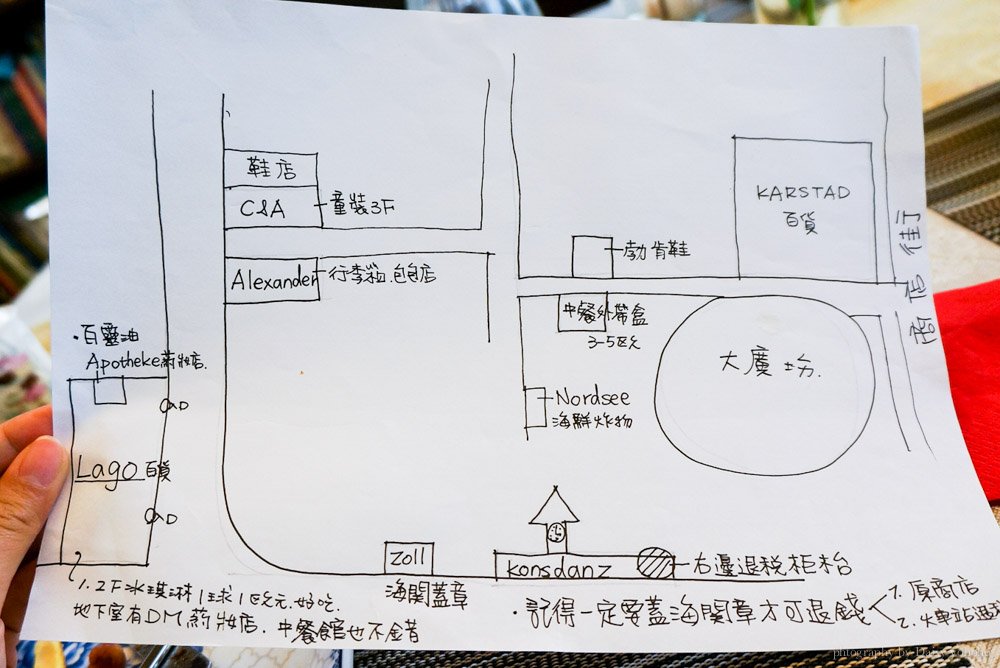 鞋店
C&A
童裝3F
Alexander
行李箱.包包店
KARSTAD
百貨
勃肯鞋
商店 街
中餐外帶盒
3-5欧元
大廣場.
Nordsee
海鮮炸物
·百靈油
Apotheke葯妝店.
Lago百貨
Zoll
海関蓋章
konsdanz
右邊退税柜枱
1. 2F冰琪淋1球1欧元.好吃.
地下室有DM葯妝店.中餐館也不錯
·記得一定要蓋海関章才可退錢
1. 原商店
2. 火車站退
photography by